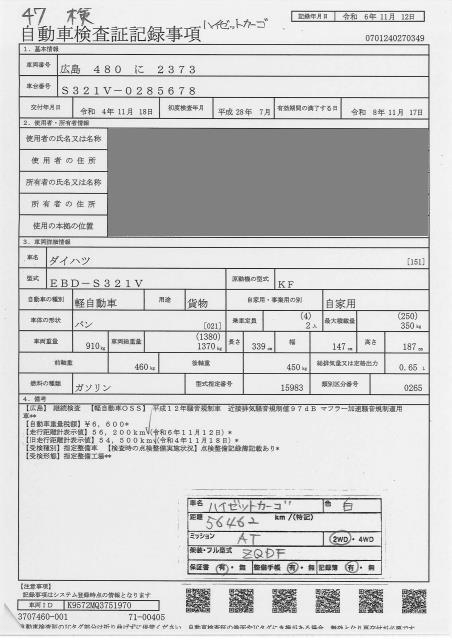 47 検
ハイゼットカーゴ
記録年月日 令和 6年11月 12日
自動車検査証記録事項
0701240270349
1. 基本情報
車両番号 広島 480 に 2373
車台番号 S321V-0285678
交付年月日 令和 4年11月 18日 初度検査年月 平成28年 7月 有効期間の満了する日 令和 8年11月 17日
2. 使用者・所有者情報
使用者の氏名又は名称
使用者の住所
所有者の氏名又は名称
所有者の住所
使用の本拠の位置
3. 車両詳細情報
車名 ダイハツ [151]
型式 EBD-S321V 原動機の型式 KF
自動車の種別 軽自動車 用途 貨物 自家用・事業用の別 自家用
車体の形状 バン [021] 乗車定員 (4) 2人 最大積載量 (250) 350kg
車両重量 910kg 車両総重量 (1380) 1370kg 長さ 339cm 幅 147cm 高さ 187cm
前軸重 460kg 後軸重 450kg 総排気量又は定格出力 0.65 L
燃料の種類 ガソリン 型式指定番号 15983 類別区分番号 0265
4. 備考
【広島】 継続検査 【軽自動車OSS】 平成12年騒音規制車 近接排気騒音規制値97dB マフラー加速騒音規制適用
車**
【自動車重量税額】¥6,600*
【走行距離計表示値】56,200km(令和6年11月12日)*
【旧走行距離計表示値】54,500km(令和4年11月18日)*
【受検種別】指定整備車 【検査時の点検整備実施状況】点検整備記録簿記載あり*
【受検形態】指定整備工場**
車名 ハイゼットカーゴ 色 白
距離 56462 km/(特記)
ミッション AT 2WD・4WD
保証書 有・無 整備手帳 有・無 記録簿 有・無
【注意事項】
記録事項はシステム登録時点の情報となります
車両ID K9572MQ3751970
3707460-001 71-00405